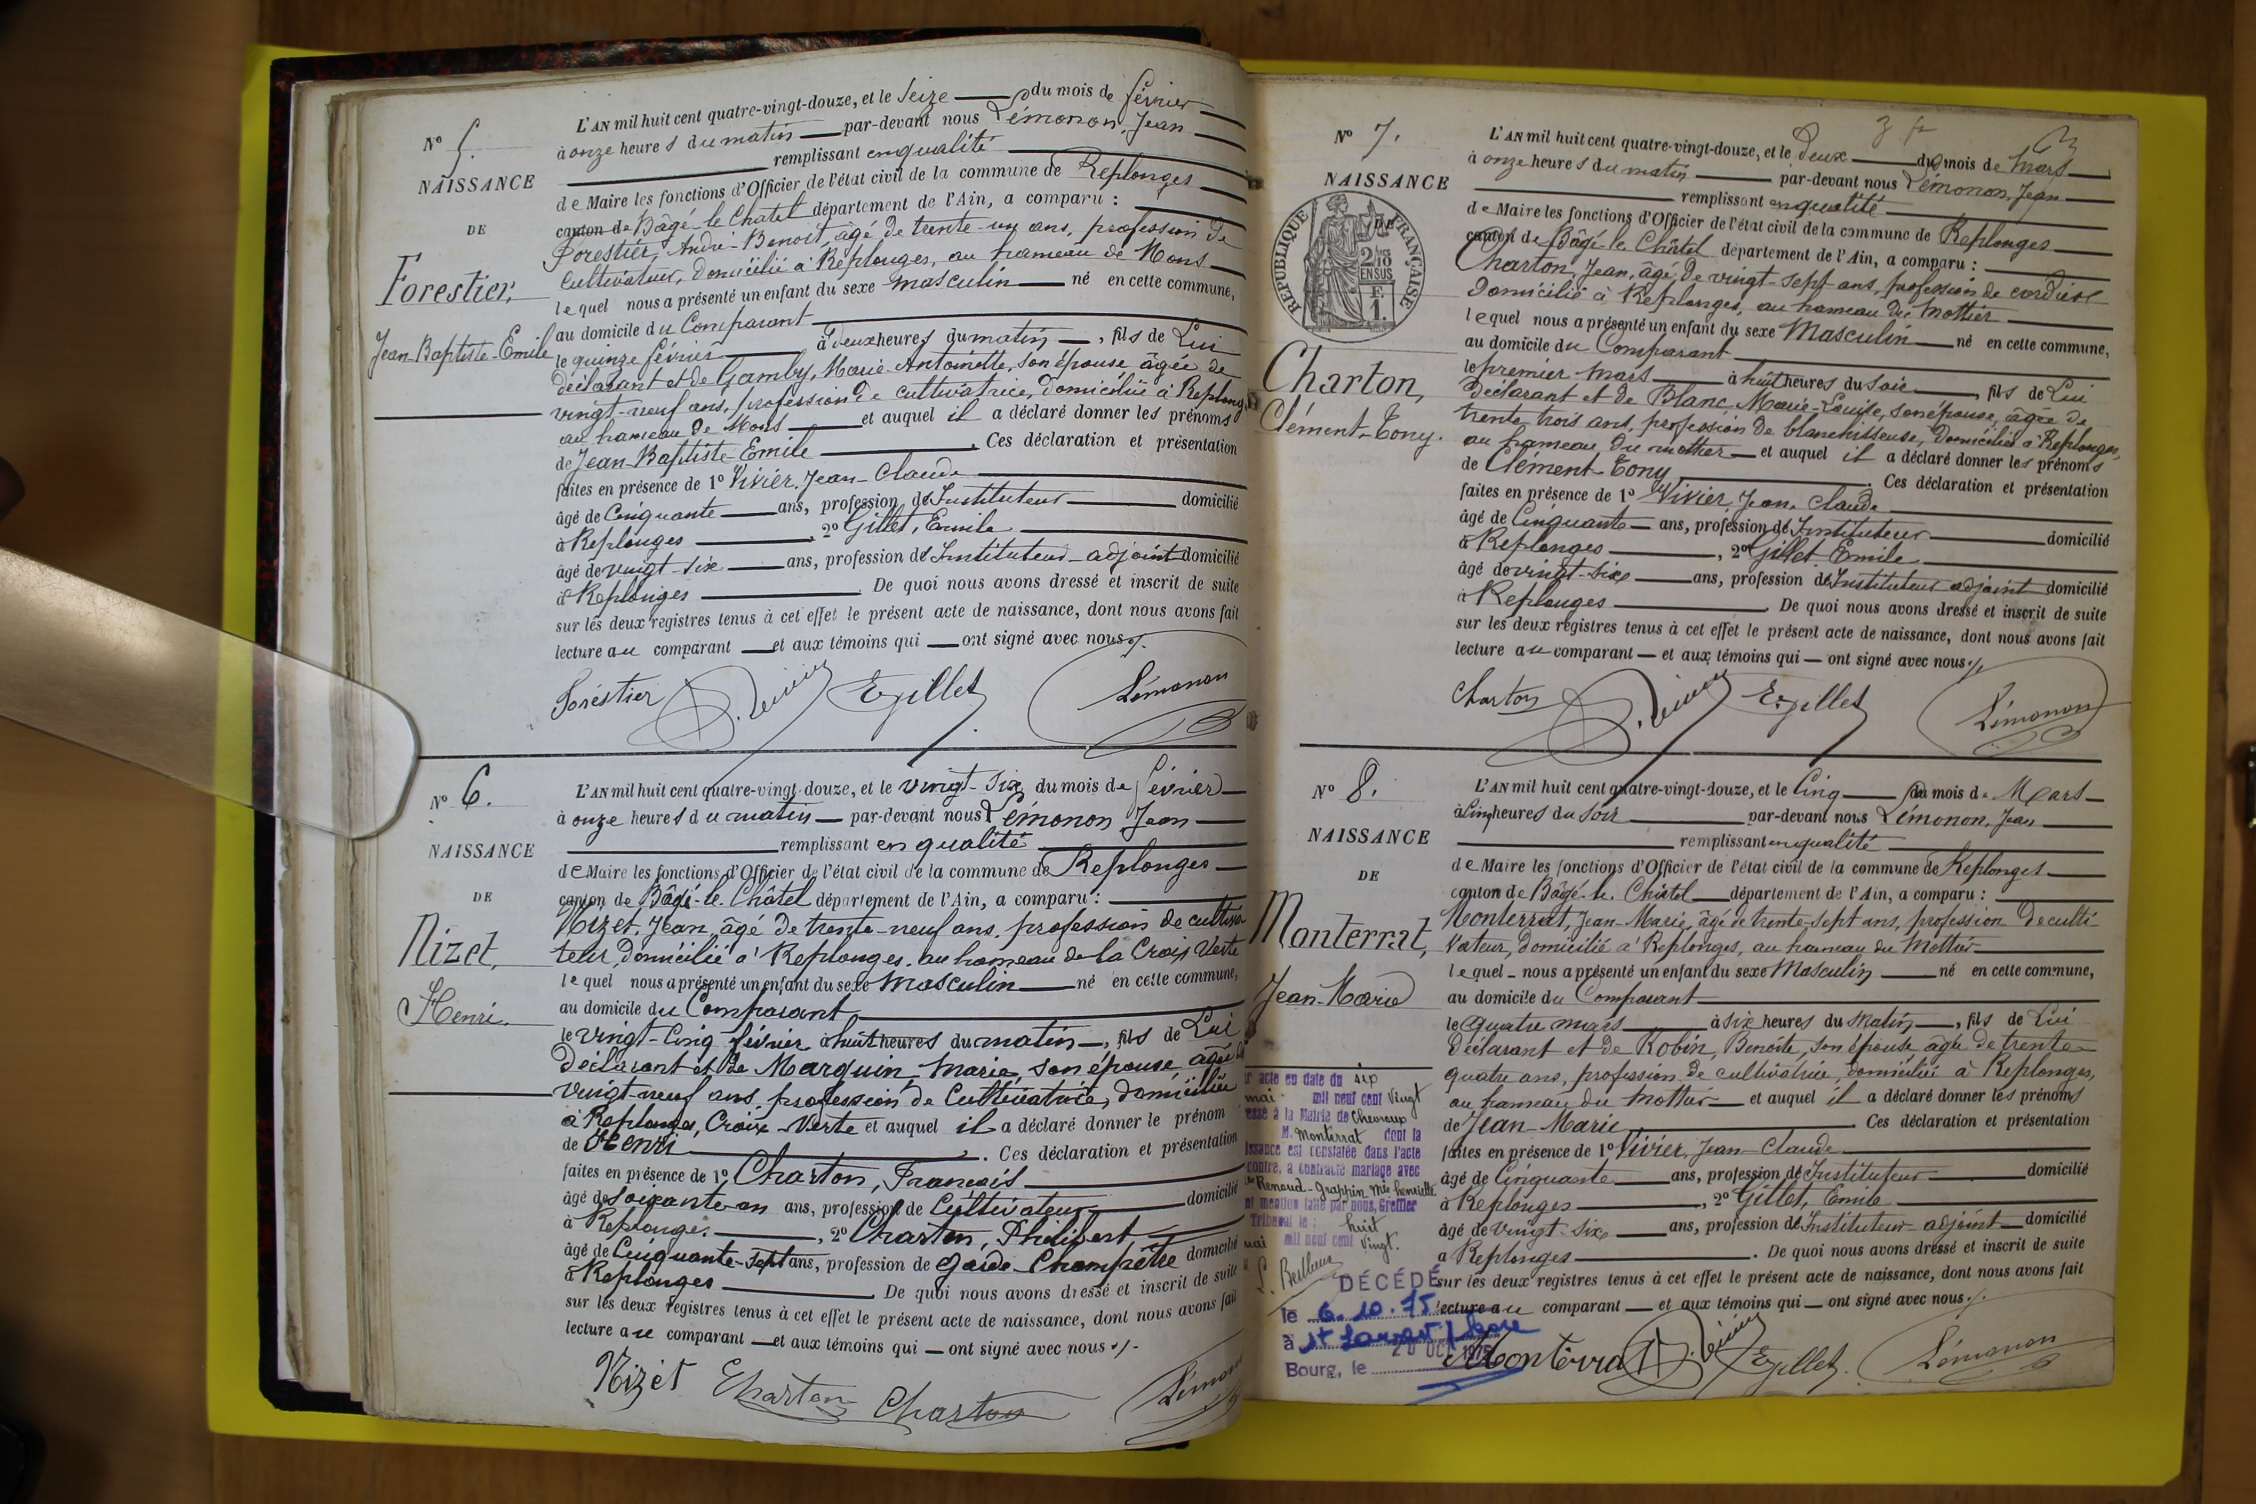 N° 5.
NAISSANCE
DE
Forestier,
Jean-Baptiste-Emile
L'AN mil huit cent quatre-vingt-douze, et le seize du mois de février
à onze heures du matin par-devant nous Lémonon, Jean
remplissant en qualité
de Maire les fonctions d'Officier de l'état civil de la commune de Replonges
canton de Bâgé-le-Châtel département de l'Ain, a comparu :
Forestier, André-Benoit, âgé de trente-un ans, profession de
Cultivateur, domicilié à Replonges, au hameau de Mons
lequel nous a présenté un enfant du sexe masculin né en cette commune,
au domicile du Comparant
le quinze février à deux heures du matin, fils de Lui
déclarant et de Gamby, Marie-Antoinette, son épouse, âgée de
vingt-neuf ans, profession de cultivatrice, domiciliée à Replonges
au hameau de Mons et auquel il a déclaré donner les prénoms
de Jean-Baptiste-Emile. Ces déclaration et présentation
faites en présence de 1° Vivier, Jean-Claude
âgé de Cinquante ans, profession d'Instituteur domicilié
à Replonges, 2° Gillet, Emile
âgé de vingt-six ans, profession d'Instituteur-adjoint domicilié
à Replonges. De quoi nous avons dressé et inscrit de suite
sur les deux registres tenus à cet effet le présent acte de naissance, dont nous avons fait
lecture au comparant et aux témoins qui ont signé avec nous.
Forestier J. Vivier E. Gillet Lémonon
N° 6.
NAISSANCE
DE
Nizet,
Henri.
L'AN mil huit cent quatre-vingt-douze, et le vingt-six du mois de février
à onze heures du matin par-devant nous Lémonon Jean
remplissant en qualité
de Maire les fonctions d'Officier de l'état civil de la commune de Replonges
canton de Bâgé-le-Châtel département de l'Ain, a comparu :
Nizet, Jean, âgé de trente-neuf ans, profession de cultiva-
teur, domicilié à Replonges, au hameau de la Croix Verte
lequel nous a présenté un enfant du sexe masculin né en cette commune,
au domicile du Comparant
le vingt-cinq février à huit heures du matin, fils de Lui
Déclarant et de Marguin, Marie, son épouse, âgée de
vingt-neuf ans, profession de Cultivatrice, domiciliée
à Replonges, Croix-Verte et auquel il a déclaré donner le prénom
de Henri. Ces déclaration et présentation
faites en présence de 1° Charton, Francois
âgé de soixante-un ans, profession de Cultivateur domicilié
à Replonges, 2° Charton, Philibert
âgé de Cinquante-sept ans, profession de Garde-Champêtre domicilié
à Replonges. De quoi nous avons dressé et inscrit de suite
sur les deux registres tenus à cet effet le présent acte de naissance, dont nous avons fait
lecture au comparant et aux témoins qui ont signé avec nous.
Nizet Charton Charton Lémonon
3
N° 7.
NAISSANCE
DE
RÉPUBLIQUE FRANÇAISE
2/10 EN SUS
F.
1.
Charton,
Clément-Tony.
L'AN mil huit cent quatre-vingt-douze, et le Deux du mois de Mars
à onze heures du matin par-devant nous Lémonon, Jean
remplissant en qualité
de Maire les fonctions d'Officier de l'état civil de la commune de Replonges
canton de Bâgé-le-Châtel département de l'Ain, a comparu :
Charton, Jean, âgé de vingt-sept ans, profession de cordier
Domicilié à Replonges, au hameau du Mottier
lequel nous a présenté un enfant du sexe Masculin né en cette commune,
au domicile du Comparant
le premier Mars à huit heures du soir, fils de Lui
Déclarant et de Blanc Marie-Louise, son épouse, âgée de
trente trois ans, profession de blanchisseuse, domiciliée à Replonges,
au hameau du mottier et auquel il a déclaré donner les prénoms
de Clément-Tony. Ces déclaration et présentation
faites en présence de 1° Vivier, Jean-Claude
âgé de Cinquante ans, profession d'Instituteur domicilié
à Replonges, 2° Gillet, Emile
âgé de vingt-six ans, profession d'Instituteur adjoint domicilié
à Replonges. De quoi nous avons dressé et inscrit de suite
sur les deux registres tenus à cet effet le présent acte de naissance, dont nous avons fait
lecture au comparant et aux témoins qui ont signé avec nous.
Charton J. Vivier E. Gillet Lémonon
N° 8.
NAISSANCE
DE
Monterrat,
Jean-Marie
L'AN mil huit cent quatre-vingt-douze, et le Cinq du mois de Mars
à Cinq heures du soir par-devant nous Lémonon, Jean
remplissant en qualité
de Maire les fonctions d'Officier de l'état civil de la commune de Replonges
canton de Bâgé-le-Châtel département de l'Ain, a comparu :
Monterrat, Jean-Marie, âgé de trente-sept ans, profession de culti-
vateur, domicilié à Replonges, au hameau du Mottier
lequel nous a présenté un enfant du sexe Masculin né en cette commune,
au domicile du Comparant
le quatre mars à six heures du Matin, fils de Lui
Déclarant et de Robin, Benoite, son épouse âgée de trente-
quatre ans, profession de cultivatrice, domiciliée à Replonges,
au hameau du Mottier et auquel il a déclaré donner les prénoms
de Jean-Marie. Ces déclaration et présentation
faites en présence de 1° Vivier, Jean-Claude
âgé de Cinquante ans, profession d'Instituteur domicilié
à Replonges, 2° Gillet, Emile
âgé de vingt-six ans, profession d'Instituteur-adjoint domicilié
à Replonges. De quoi nous avons dressé et inscrit de suite
sur les deux registres tenus à cet effet le présent acte de naissance, dont nous avons fait
lecture au comparant et aux témoins qui ont signé avec nous.
Monterrat J. Vivier E. Gillet Lémonon
acte en date du six
mai mil neuf cent vingt
à la Mairie de Chevroux
M. Monterrat dont la
issance est constatée dans l'acte
contre, a contracté mariage avec
Renoud-Grappin Mie henriette
mention faite par nous, Greffier
Tribunal le : huit
mai mil neuf cent vingt.
DÉCÉDÉ
le 6.10.75
à St Laurent s/ Saone
Bourg, le 20 OCT 1975